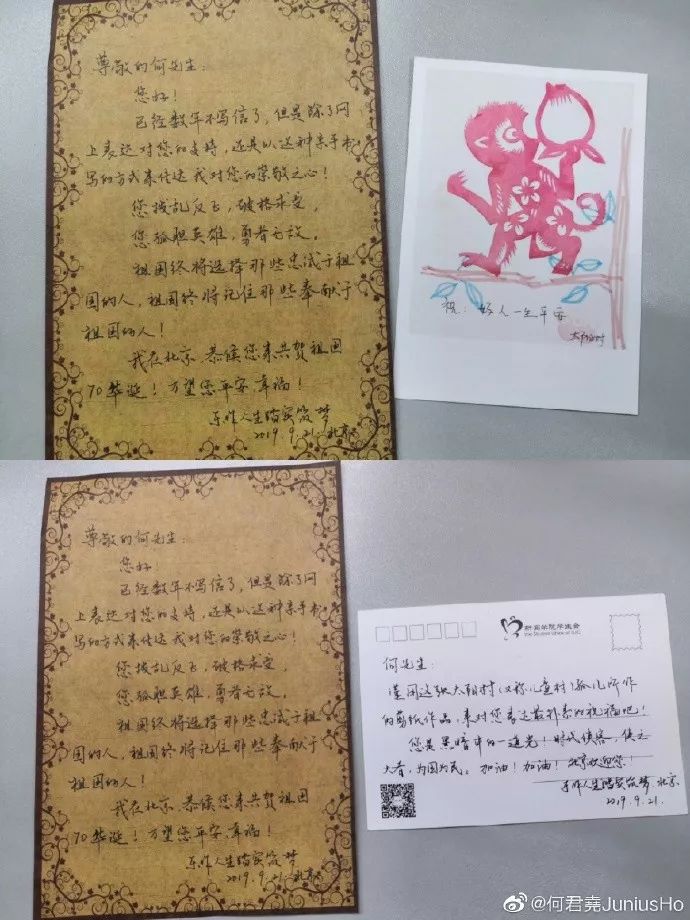 尊敬的何先生：
您好！
已经数年不写信了，但是除了网
上表达对您的支持，还是以这种亲手书
写的方式来传达我对您的崇敬之心！
您拨乱反正，破格求变，
您孤胆英雄，勇者无敌。
祖国终将选择那些忠诚于祖
国的人，祖国终将记住那些奉献于
祖国的人！
我在北京，恭候您来共贺祖国
70华诞！万望您平安、幸福！
人生踏实筑梦
2019.9.21.北京
祝：好人一生平安
太阳村
尊敬的何先生：
您好！
已经数年不写信了，但是除了网
上表达对您的支持，还是以这种亲手书
写的方式来传达我对您的崇敬之心！
您拨乱反正，破格求变，
您孤胆英雄，勇者无敌。
祖国终将选择那些忠诚于祖
国的人，祖国终将记住那些奉献于
祖国的人！
我在北京，恭候您来共贺祖国
70华诞！万望您平安、幸福！
人生踏实筑梦
2019.9.21.北京
新闻学院学生会
何先生：
谨用这张太阳村（又称儿童村）孤儿所作
的剪纸作品，来对您表达最朴素的祝福吧！
您是黑暗中的一道光！时代侠客，侠之
大者，为国为民。加油！加油！北京欢迎您！
人生踏实筑梦，北京
2019.9.21.
@何君堯JuniusHo